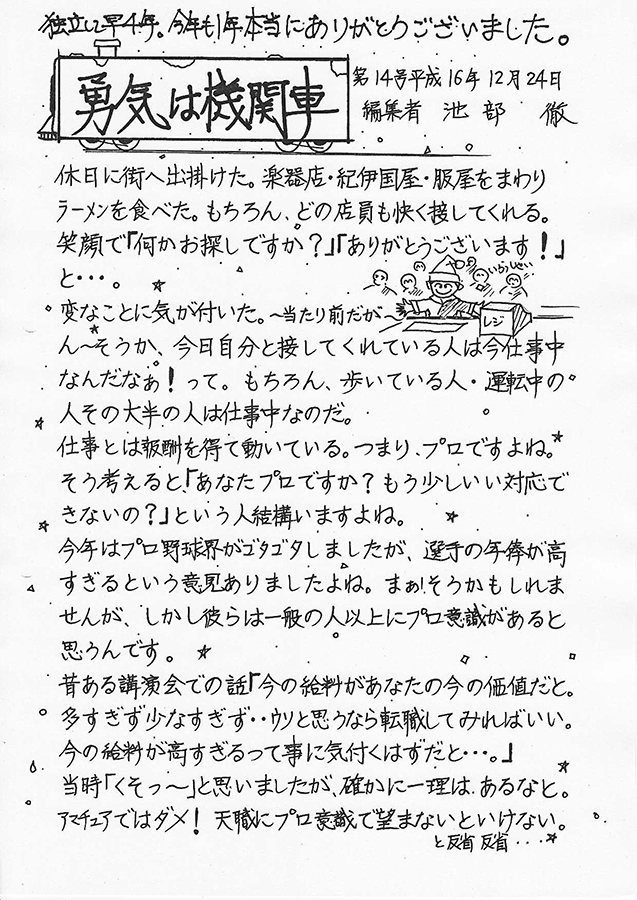 独立して早4年。今年も1年本当にありがとうございました。
勇気は機関車
第14号平成16年12月24日
編集者 池部 徹
休日に街へ出掛けた。楽器店・紀伊国屋・服屋をまわり
ラーメンを食べた。もちろん、どの店員も快く接してくれる。
笑顔で「何かお探しですか？」「ありがとうございます！」
と・・・。
いらっしゃい
変なことに気が付いた。～当たり前だが～
レジ
ん～そうか、今日自分と接してくれている人は今仕事中
なんだなぁ！って。もちろん、歩いている人・運転中の
人その大半の人は仕事中なのだ。
仕事とは報酬を得て動いている。つまり、プロですよね。
そう考えると、「あなたプロですか？もう少しいい対応で
きないの？」という人結構いますよね。
今年はプロ野球界がゴタゴタしましたが、選手の年俸が高
すぎるという意見ありましたよね。まぁ！そうかもしれま
せんが、しかし彼らは一般の人以上にプロ意識があると
思うんです。
昔ある講演会での話「今の給料があなたの今の価値だと。
多すぎず少なすぎず・・ウソと思うなら転職してみればいい。
今の給料が高すぎるって事に気付くはずだと・・・。」
当時「くそっ～」と思いましたが、確かに一理は、あるなと。
アマチュアではダメ！天職にプロ意識で望まないといけない。
と反省反省・・・